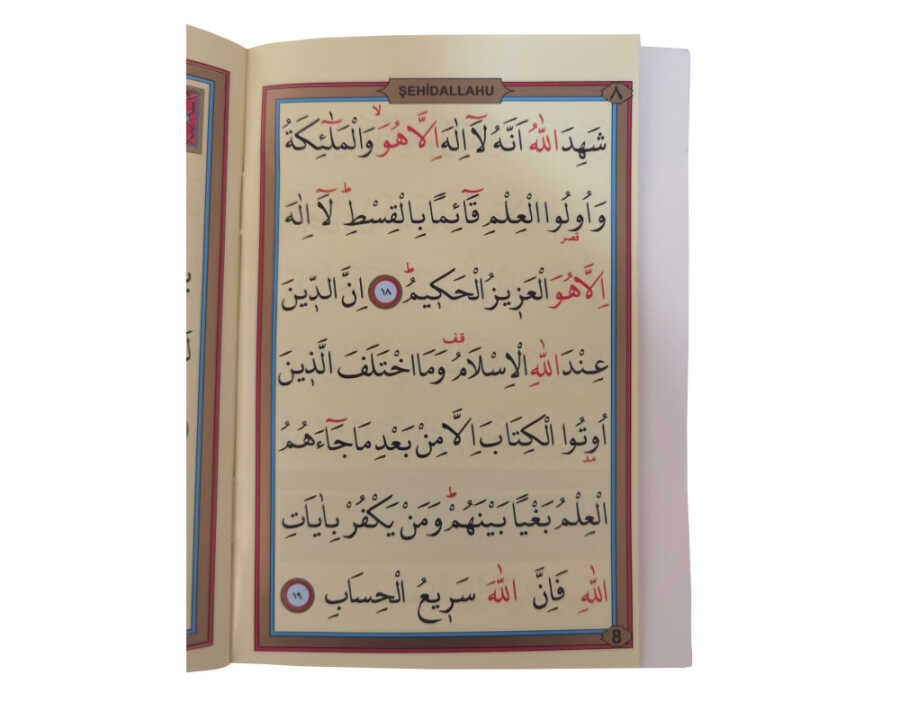 ŞEHİDALLAHU
٨
شَهِدَ اللّٰهُ اَنَّهُ لَٓا اِلٰهَ اِلَّا هُوَۙ وَالْمَلٰٓئِكَةُ
وَاُو۬لُوا الْعِلْمِ قَٓائِمًا بِالْقِسْطِۜ لَٓا اِلٰهَ
قصر
اِلَّا هُوَ الْعَزٖيزُ الْحَكٖيمُۜ ١٨ اِنَّ الدّٖينَ
عِنْدَ اللّٰهِ الْاِسْلَامُ قف وَمَا اخْتَلَفَ الَّذٖينَ
اُو۫تُوا الْكِتَابَ اِلَّا مِنْ بَعْدِ مَا جَٓاءَهُمُ
مد
الْعِلْمُ بَغْيًا بَيْنَهُمْۜ وَمَنْ يَكْفُرْ بِاٰيَاتِ
اللّٰهِ فَاِنَّ اللّٰهَ سَرٖيعُ الْحِسَابِ ١٩
8